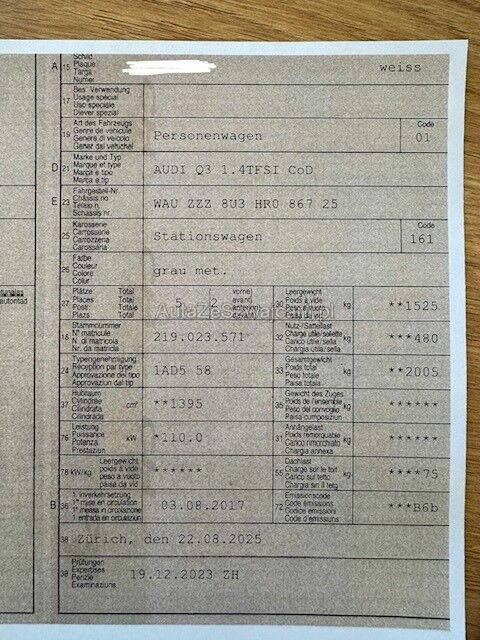 A 15 Schild
Plaque
Targa
Numer
weiss
17 Bes. Verwendung
Usage spécial
Uso speciale
Diever spezial
19 Art des Fahrzeugs
Genre de véhicule
Genere di veicolo
Gener dal vehichel
Personenwagen
Code
01
D 21 Marke und Typ
Marque et type
Marca e tipo
Marca e tip
AUDI Q3 1.4TFSI CoD
E 23 Fahrgestell-Nr.
Châssis no
Telaio n.
Schassis nr.
WAU ZZZ 8U3 HR0 867 25
25 Karosserie
Carrosserie
Carrozzeria
Carossaria
Stationswagen
Code
161
26 Farbe
Couleur
Colore
Colur
grau met.
27 Plätze: Total
Places Total
Posti: Totale
Plazs: Total
5
vorne
avant
anteriori
davant
2
30 Leergewicht
Poids à vide
Peso a vuoto
Paisa da vid
kg
**1525
18 Stammnummer
N° matricule
N. di matricola
Nr. da matricla
219.023.571
32 Nutz-/Sattellast
Charge utile/sellette
Carico utile/sella
Chargia utila/sella
kg
***480
24 Typengenehmigung
Réception par type
Approvazione del tipo
Approvaziun dal tip
1AD5 58
33 Gesamtgewicht
Poids total
Peso totale
Paisa totala
kg
**2005
37 Hubraum
Cylindrée
Cilindrata
Cilindrada
cm³
**1395
35 Gewicht des Zuges
Poids de l'ensemble
Peso del convoglio
Paisa cumposiziun
kg
******
76 Leistung
Puissance
Potenza
Prestaziun
kW
*110.0
31 Anhängelast
Poids remorquable
Carico rimorchiato
Chargia annexa
kg
******
78 kW/kg Leergewicht
poids à vide
peso a vuoto
paisa da vid
******
55 Dachlast
Charge sur le toit
Carico sul tetto
Chargia sin il tetg
kg
****75
B 36 1. Inverkehrsetzung
1re mise en circulation
1a messa in circolazione
1 entrada en circulaziun
03.08.2017
72 Emissionscode
Code émissions
Codice emissioni
Code d'emissiuns
***B6b
38 Zürich, den 22.08.2025
39 Prüfungen
Expertises
Perizie
Examinaziuns
19.12.2023 ZH